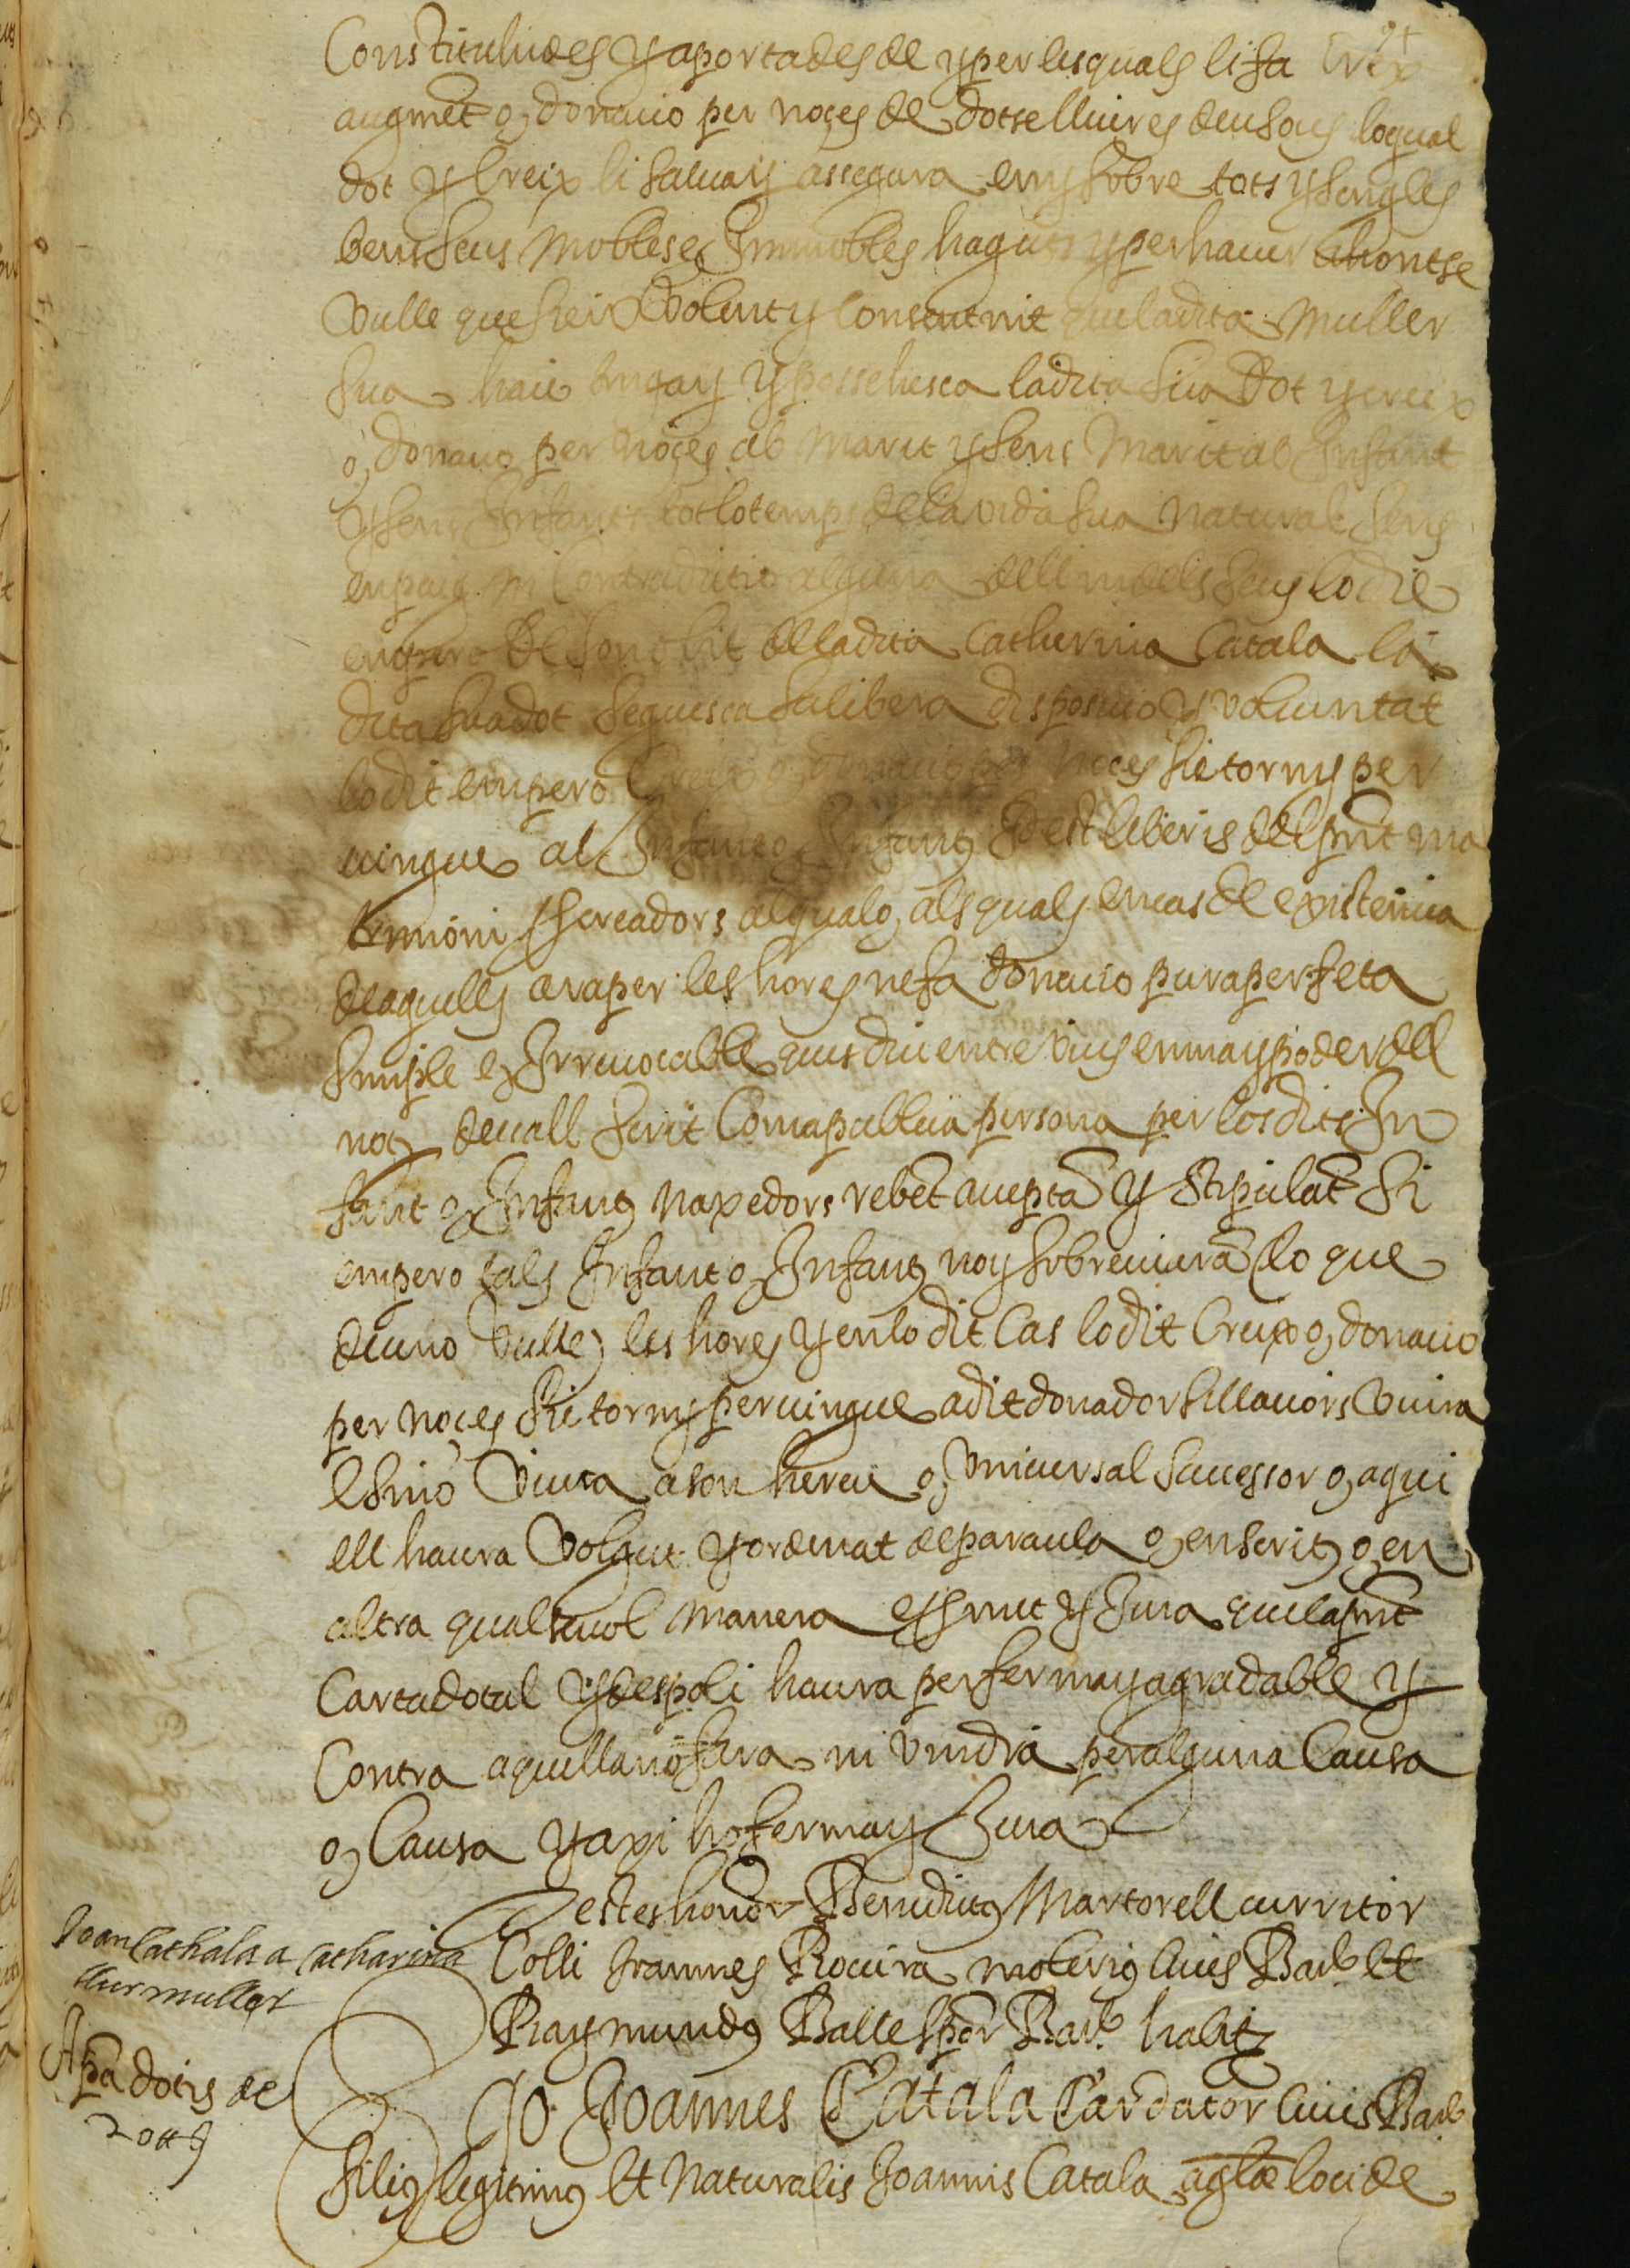 Constituhides y aportades de y per les quals li fa Creix
augmēt o donacio per noçes de dotse lliures deu sous lo qual
dot y Creix li salua y assegura en y sobre tots y sengles
bens seus mobles e Immobles haguts y per hauer ahont se
vulle que sien volent y consentint que la dita muller
sua haie tinga y y possehesca la dita sua dot y creix
o donacio per noçes ab marit y sens marit ab Infant
y sens Infants tot lo temps de la vida sua natural sens
enpaig ni Contradictio alguna dell ni dels seus lo die
empero del son obit de la dita Catherina Catala la
dita sua dot seguesca sa libera disposicio y voluntat
lo dit empero Creix o donacio per noces sie torn y per
uingue al Infant o Infants Id est liberis del pnt ma
trimoni procreadors al qual o als quals en cas de existencia
de aquells ara per les hores ne fa donacio pura perfeta
simple e Irreuocable ques diu entre vius en ma y poder dell
not deuall scrit Com a publica persona per los dits In
fant o Infants naxedors rebēt acceptā y stipulāt Si
empero tals Infant o Infants noy sobreuiurā (lo que
deu no vulle) les hores y en lo dit Cas lo dit Creix o donacio
per noçes sie torn y peruingue a dit donador si llauors viura
E si no viura a son hereu o vniuersal successor o a qui
ell haura volgut y ordenat de paraula o en scrits o en
altra qualseuol manera E promet y Jura que la pnt
Carta dotal y despoli haura per ferma y agradable y
Contra aquella no fara ni vindra per alguna Causa
o Causa y axi ho ferma y Jura
Testes honor Benedictus Martorell curritor
Colli Joannes Rouira molerius Ciues Barc et
Raymundus Balle Barc habit
Joan Cathala a Catharina
llur muller
Apā dotis de
Jo Joannes Catala Cardator Ciuis Barc
filius legitimus Et naturalis Joannis Catala loci de